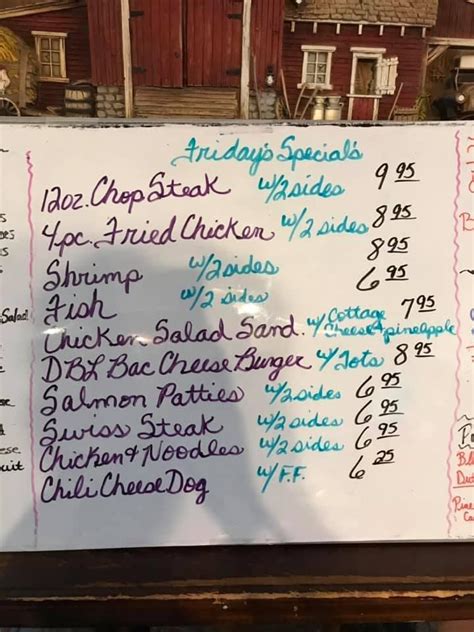 Friday's Special's
12oz. Chop Steak w/2 sides 9 95
4pc. Fried Chicken w/2 sides 8 95
Shrimp w/2 sides 8 95
Fish w/2 sides 6 95
Chicken Salad Sand. w/ Cottage Cheese & pineapple 7 95
DBL Bac Cheese Burger w/Tots 8 95
Salmon Patties w/2 sides 6 95
Swiss Steak w/2 sides 6 95
Chicken & Noodles w/2 sides 6 95
Chili Cheese Dog w/F.F. 6 25